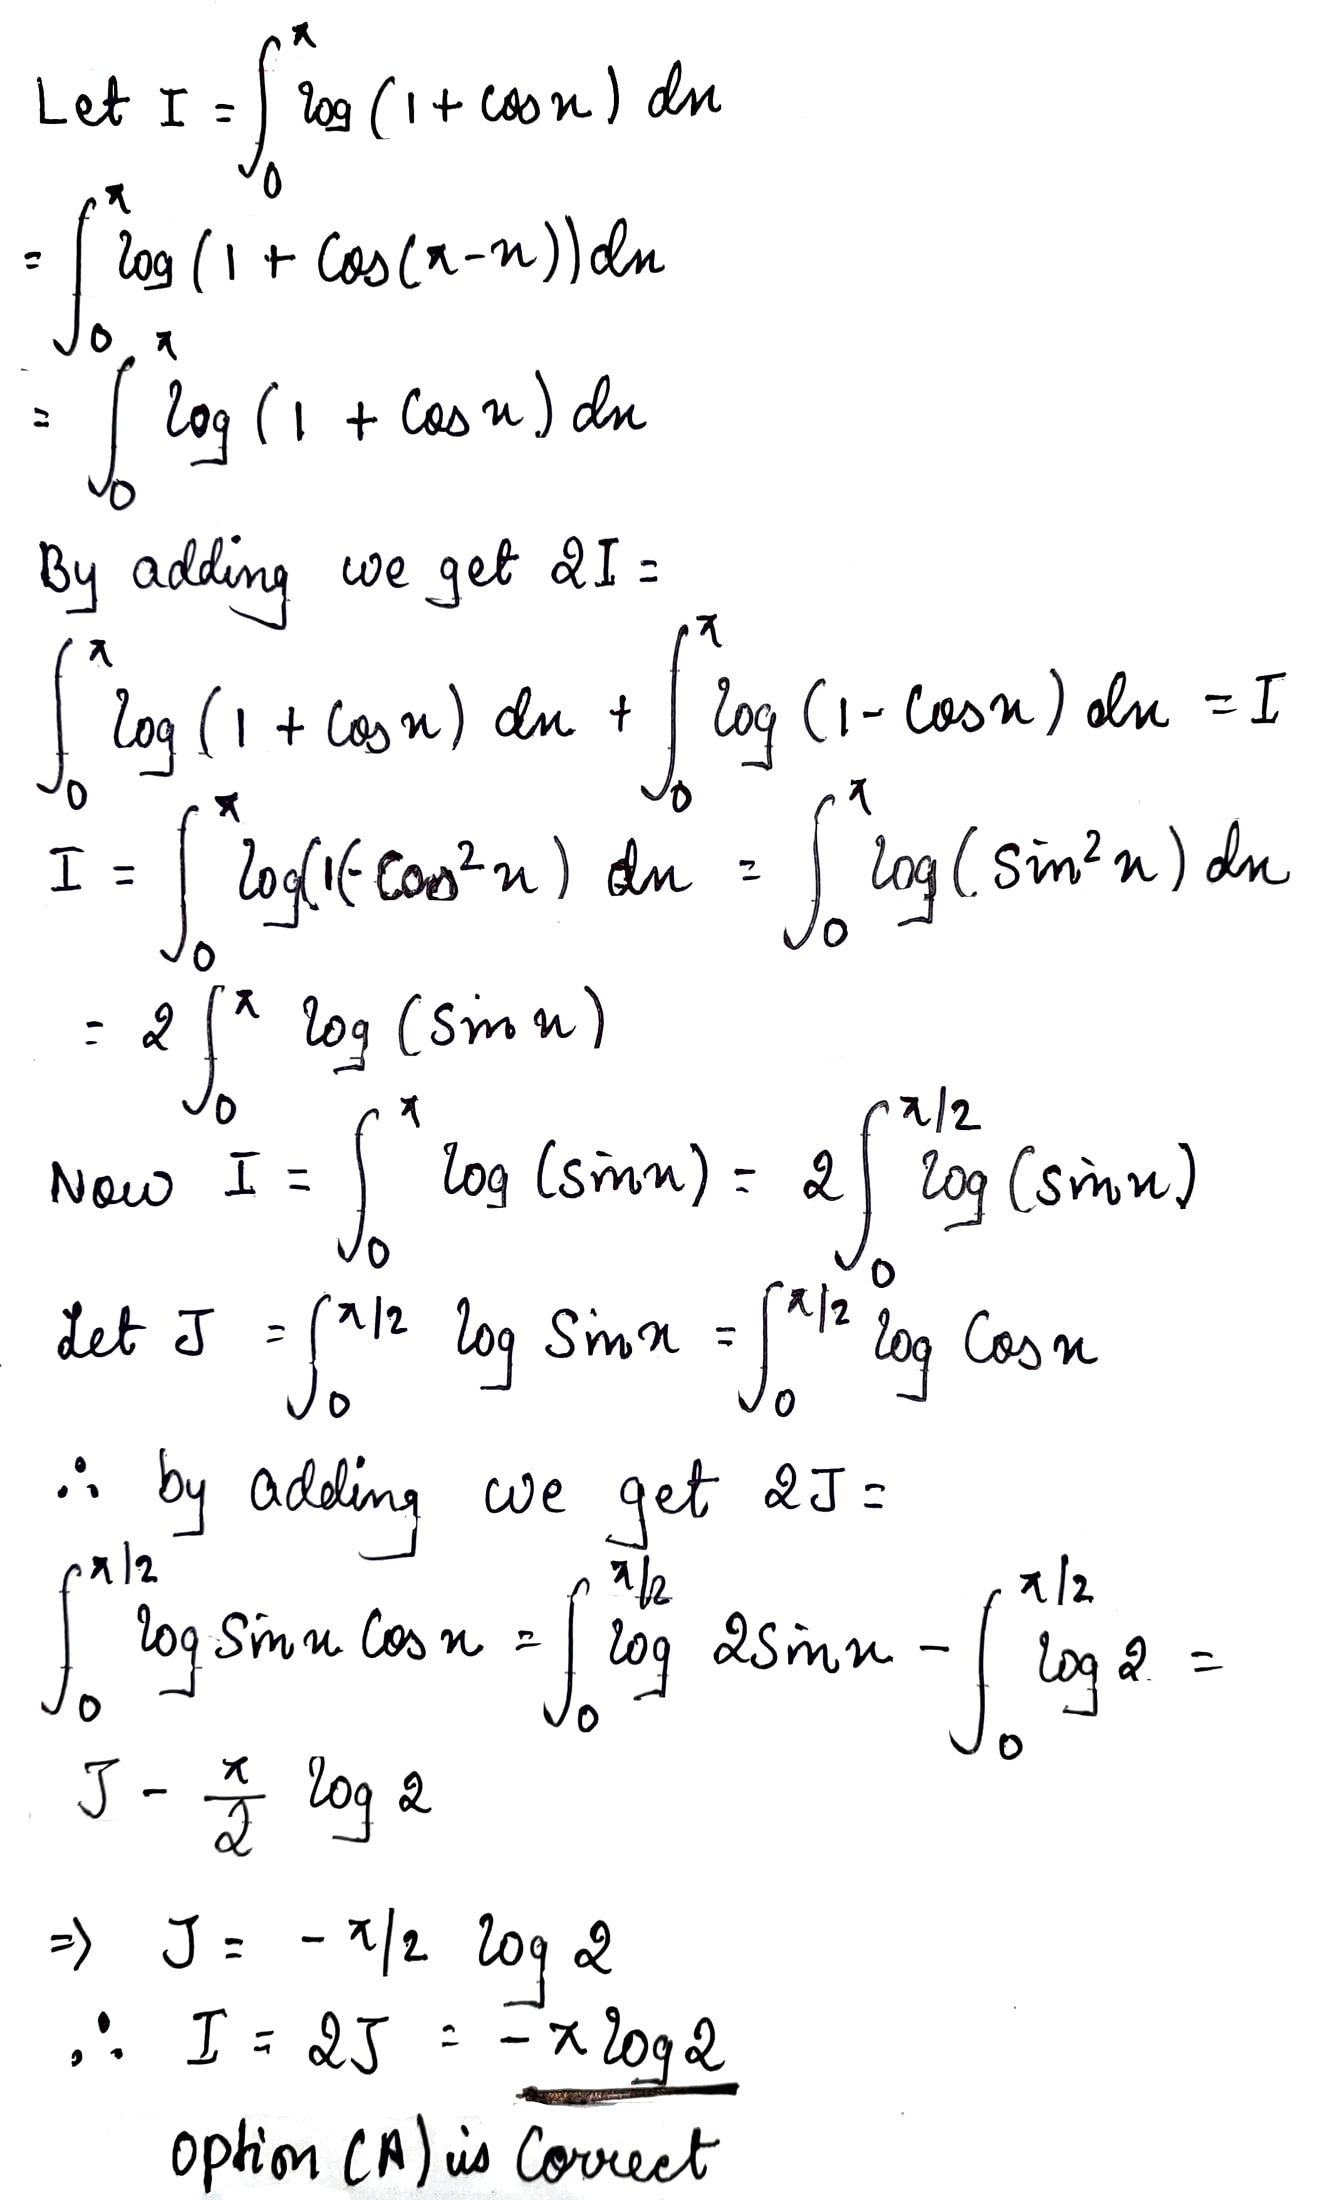 Let I = ∫₀^π log (1 + cos x) dx
= ∫₀^π log (1 + Cos(π-x)) dx
= ∫₀^π log (1 + Cos x) dx
By adding we get 2I =
∫₀^π log (1 + Cos x) dx + ∫₀^π log (1 - Cos x) dx = I
I = ∫₀^π log(1 - Cos² x) dx = ∫₀^π log (Sin² x) dx
= 2 ∫₀^π log (Sin x)
Now I = ∫₀^π log (Sin x) = 2 ∫₀^π/2 log (Sin x)
Let J = ∫₀^π/2 log Sin x = ∫₀^π/2 log Cos x
∴ by adding we get 2J =
∫₀^π/2 log Sin x Cos x = ∫₀^π/2 log 2Sin x - ∫₀^π/2 log 2 =
J - π/2 log 2
⇒ J = - π/2 log 2
∴ I = 2J = - π log 2
option (A) is Correct